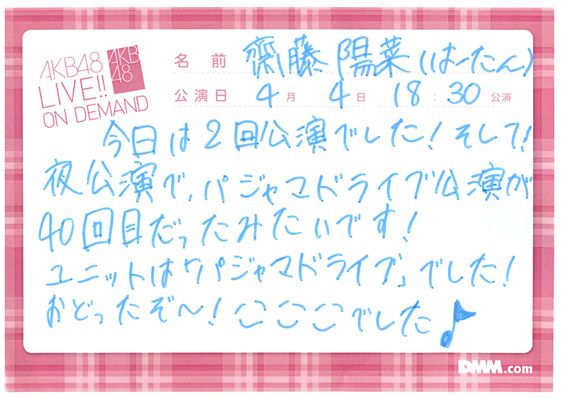 AKB48
LIVE!!
ON DEMAND
AKB
48
名前 齋藤陽菜(はーたん)
公演日 4月 4日 18:30 公演
今日は2回公演でした!そして!
夜公演で、パジャマドライブ公演が
40回目だったみたいです!
ユニットは「パジャマドライブ」でした!
おどったぞ〜!
でした♪
DMM.com